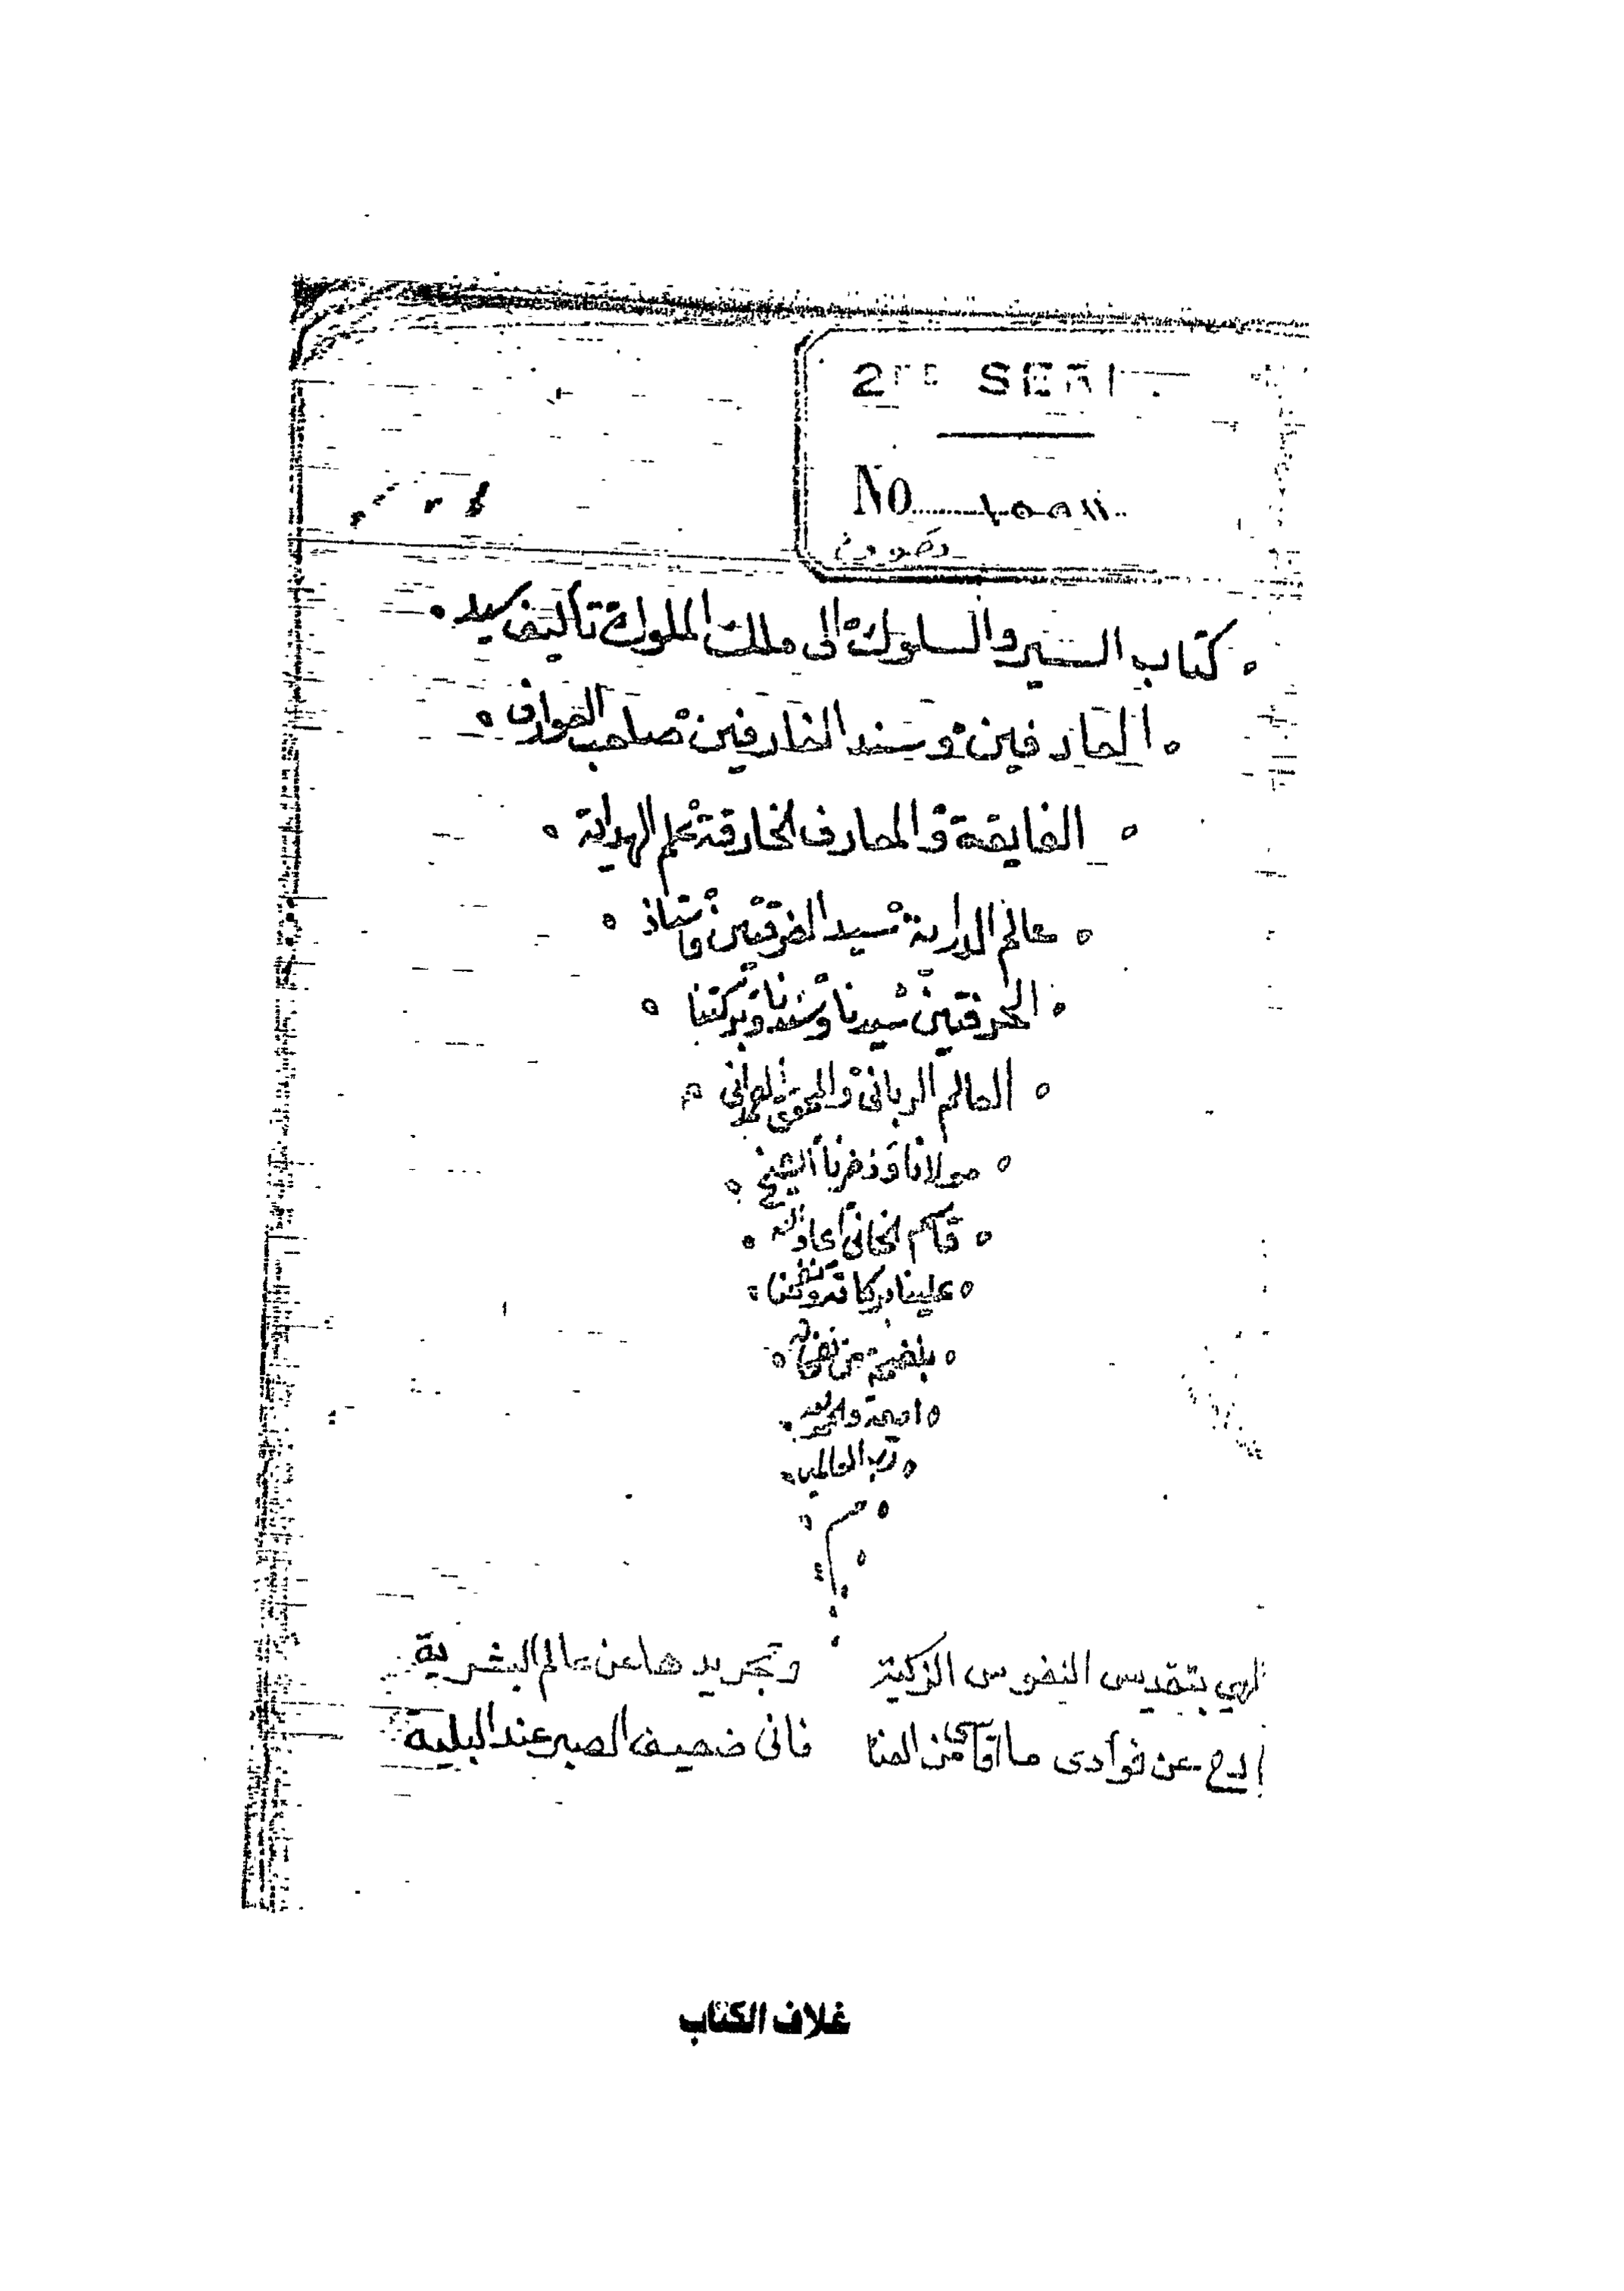 2me SERI
No
تصوف
كتاب السير والسلوك الى ملك الملوك تأليف سيد
العارفين وسند الغارفين صاحب العوارف
الفايقة والمعارف الخارقة علم الهداية
عالم الدراية سيد الفرقتين واستاذ
الحرفتين سيدنا وسندنا وبركتنا
العالم الربانى والصمدانى
مولانا وذخرنا الشيخ
قاسم الخانى اعاد الله
علينا بركاته
من نفحاته
امين والحمد لله
رب العالمين
م
الهي بتقديس النفوس الزكية وتجريدها عن عالم البشرية
ارح عن فوادى ما اقاسى من العنا فانى ضعيف الصبر عند البلية
غلاف الكتاب